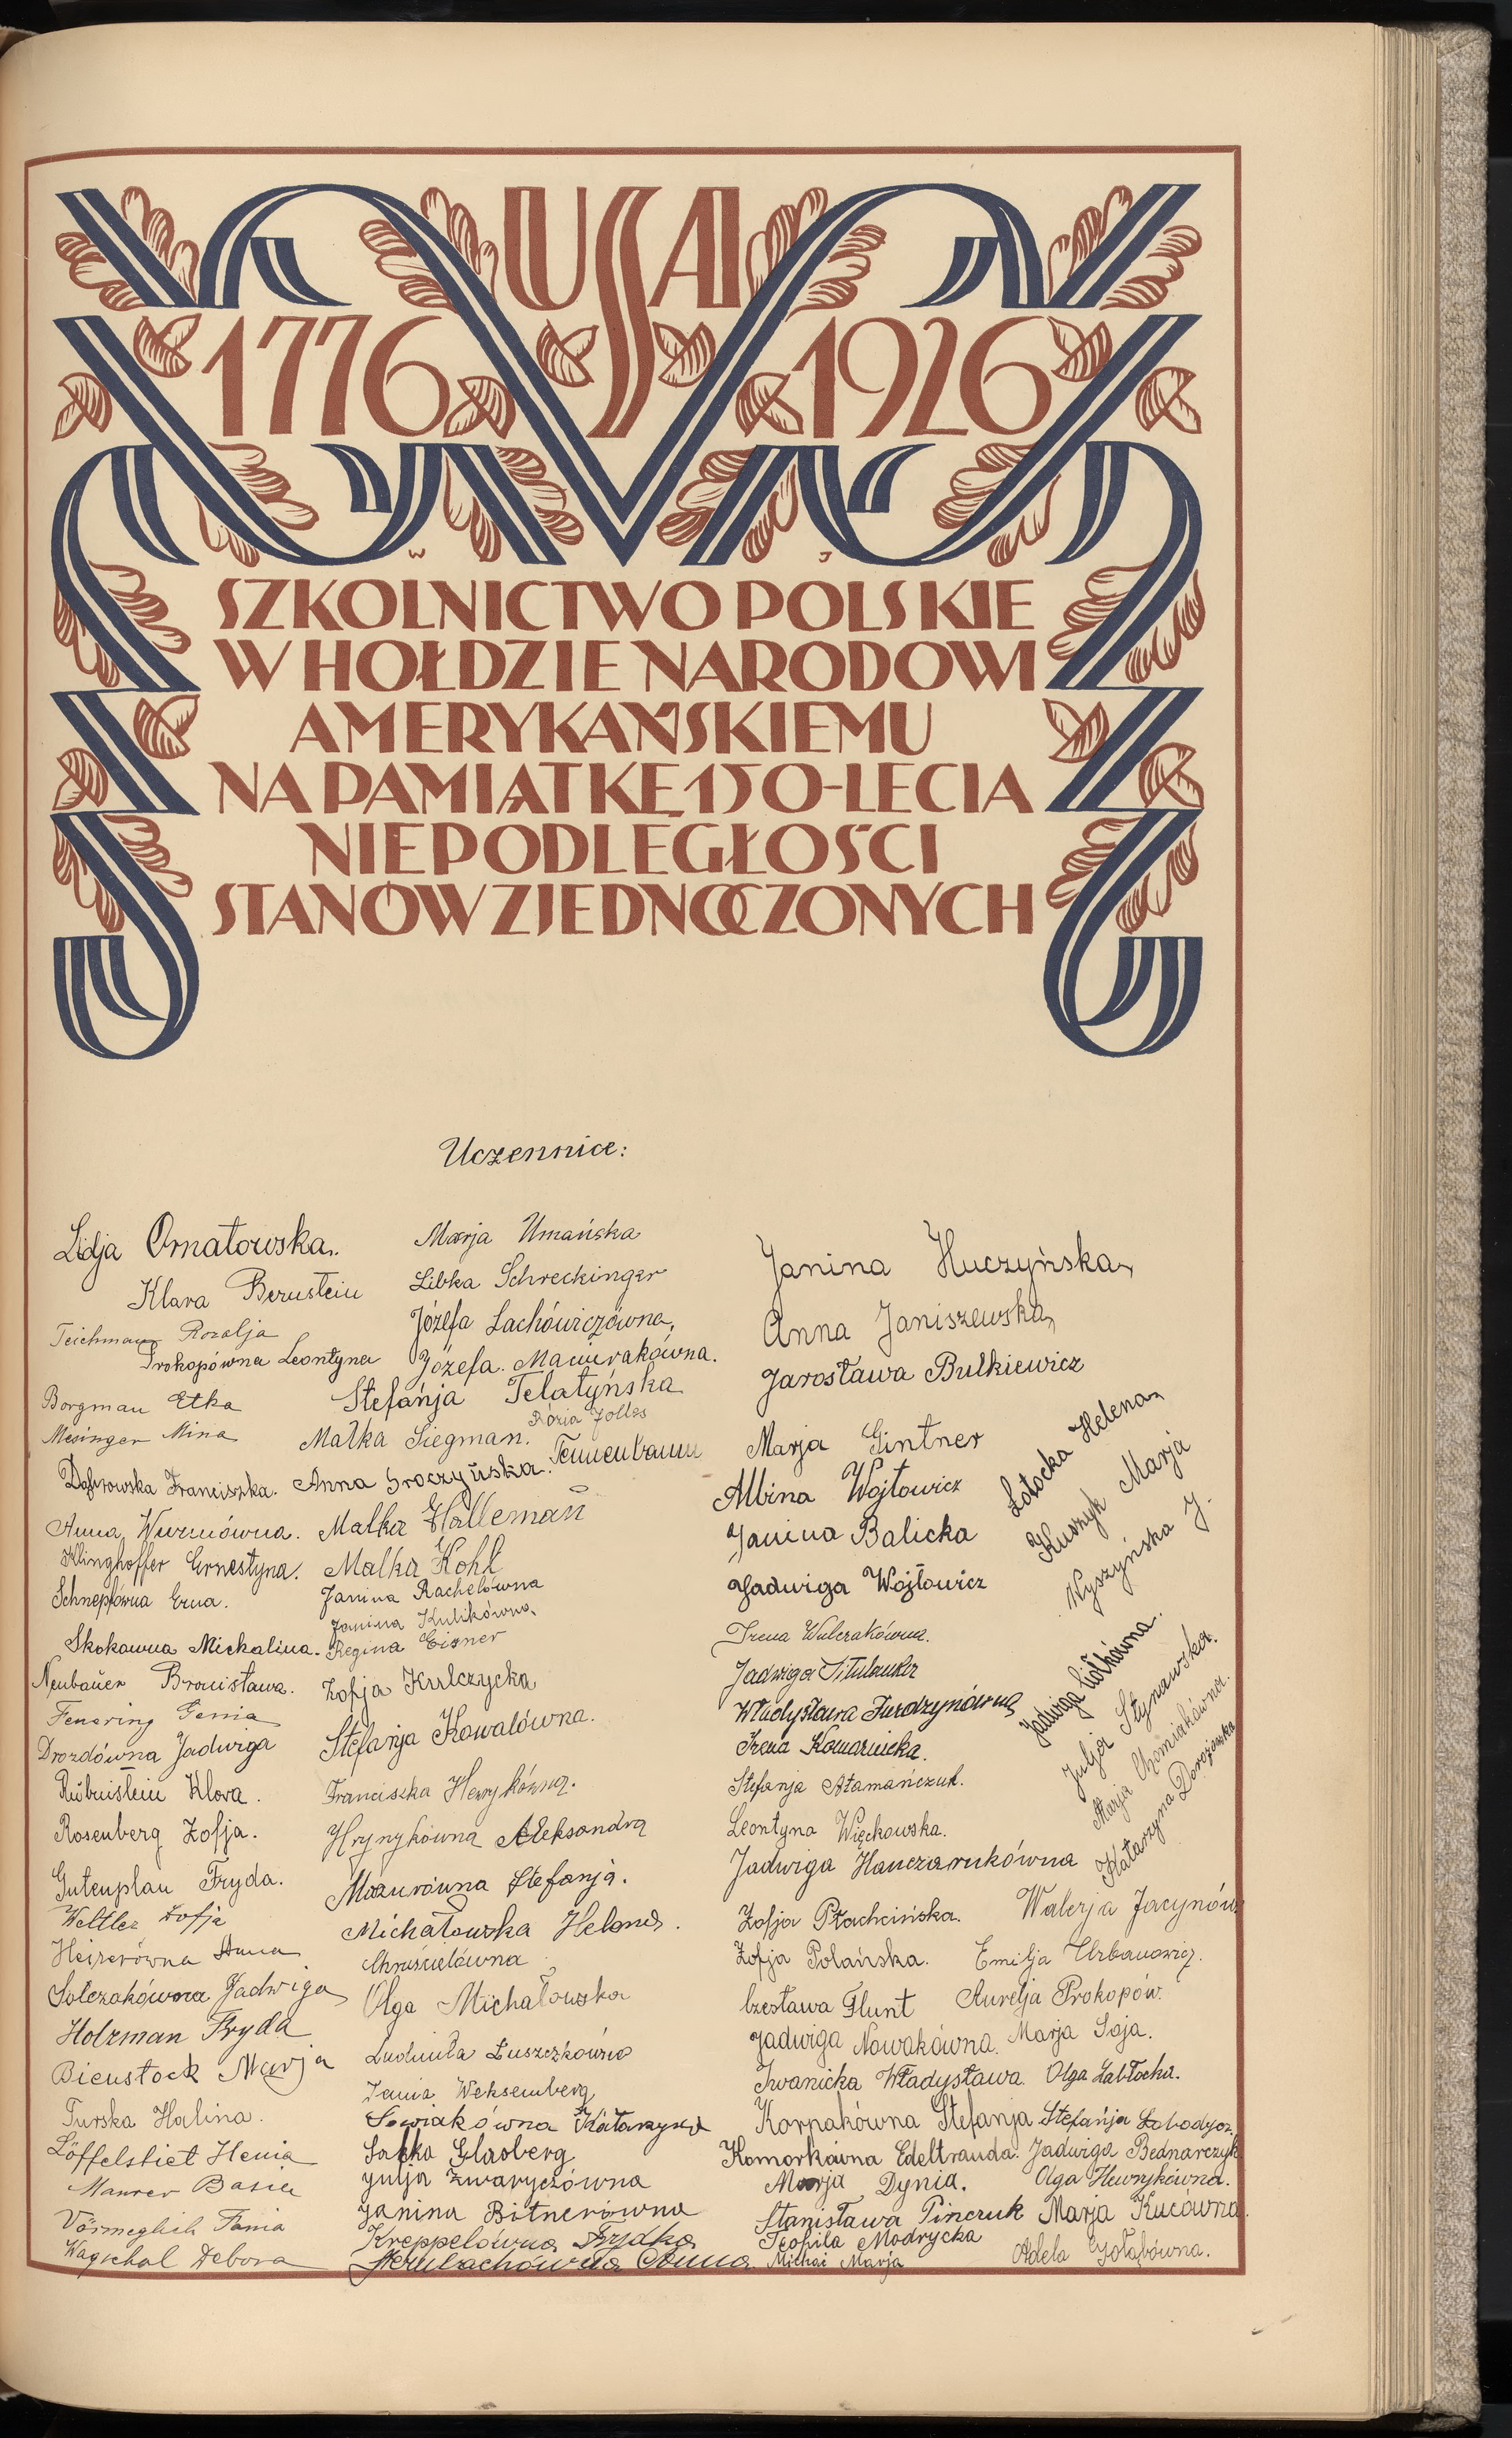 USA
1776 1926
W J
SZKOLNICTWO POLSKIE
W HOŁDZIE NARODOWI
AMERYKAŃSKIEMU
NA PAMIĄTKĘ 150-LECIA
NIEPODLEGŁOŚCI
STANÓW ZJEDNOCZONYCH
Uczennice:
Lidja Ornatowska.
Klara Bernstein
Teichman Rozalja
Prokopówna Leontyna
Borgman Etka
Mesinger Mina
Dąbrowska Franciszka.
Anna Wurmówna.
Klinghoffer Ernestyna.
Schnepfówna Erna.
Skokawna Michalina.
Neubaüer Bronisława.
Feuering Genia
Drozdówna Jadwiga
Rubinstein Klara.
Rosenberg Zofja.
Gutenplan Fryda.
Weltler Zofja
Heizerówna Anna
Sołczakówna Jadwiga
Holzman Fryda
Bienstock Marja
Turska Halina.
Löffelstiel Henia
Maurer Basia
Vörmeglich Fania
Wagschal Debora
Marja Umańska
Libka Schreckinger
Józefa Lachówiczówna,
Józefa. Macierakówna.
Stefanja Telatyńska
Rózia Jolles
Malka Siegman.
Tennenbaum
Anna Sroczyńska.
Malka Halleman
Malka Kohl
Janina Rachelówna
Janina Kulikówna
Regina Eisner
Zofja Kulczycka
Stefanja Kowalówna.
Franciszka Henrykówna.
Hrynykówna Aleksandra
Mazurówna Stefanja.
Michałowska Helena.
Chruścielówna
Olga Michałowska
Ludmiła Łuszczkówna
Fania Weksemberg
Sowiakówna Katarzyna
Salka Glasberg
Julja Zwaryczówna
Janina Bitnerówna
Kreppelówna Frydka
Anna
Janina Huczyńska
Anna Janiszewska
Jarosława Bulkiewicz
Marja Gintner
Albina Wojtowicz
Janina Balicka
Jadwiga Wojtowicz
Irena Walczakówna.
Jadwiga
Władysława Furdzynówna
Irena Komarnicka.
Stefanja Atamańczuk.
Leontyna Więckowska.
Jadwiga Hanczarukówna
Zofja Płachcińska.
Zofja Polańska.
Czesława Flunt
Jadwiga Nowakówna.
Iwanicka Władysława.
Korpakówna Stefanja
Komorkówna Edeltrauda.
Marja Dynia.
Stanisława Pinczuk
Teofila Modrycka
Michać Marja
Łotocka Helena
Kuszyk Marja
Wyszyńska J.
Jadwiga Ciołkówna.
Julja Stynawska.
Marja Chomiakówna.
Katarzyna Dorożowska
Walerja Jacynów
Emilja Urbanowicz.
Aurelja Prokopów.
Marja Soja.
Olga Zabłocka.
Stefanja Łobodycz.
Jadwiga Bednarczyk
Olga Hawrykówna.
Marja Kucówna.
Adela Gołąbówna.